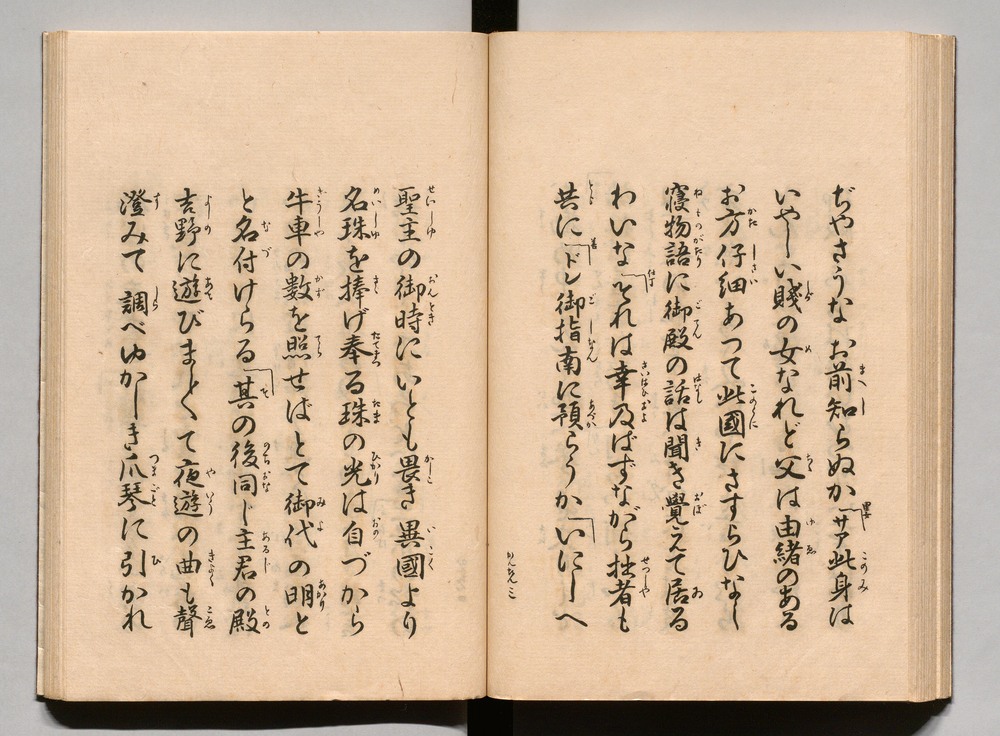 ぢやさうな お前知らぬか「サア此身は
いやしい賤の女なれど父は由緒のある
お方仔細あつて此國にさすらひなし
寝物語に御殿の話は聞き覺えて居る
わいな「それは幸及ばずながら拙者も
共に「ドレ御指南に預らうか「いにしへ
聖主の御時にいとも畏き異國より
名珠を捧げ奉る珠の光は自づから
牛車の数を照せばとて御代の明と
と名付けらる「其の後同じ主君の殿
吉野に遊びまして夜遊の曲も聲
澄みて 調べゆかしき爪琴に引かれ